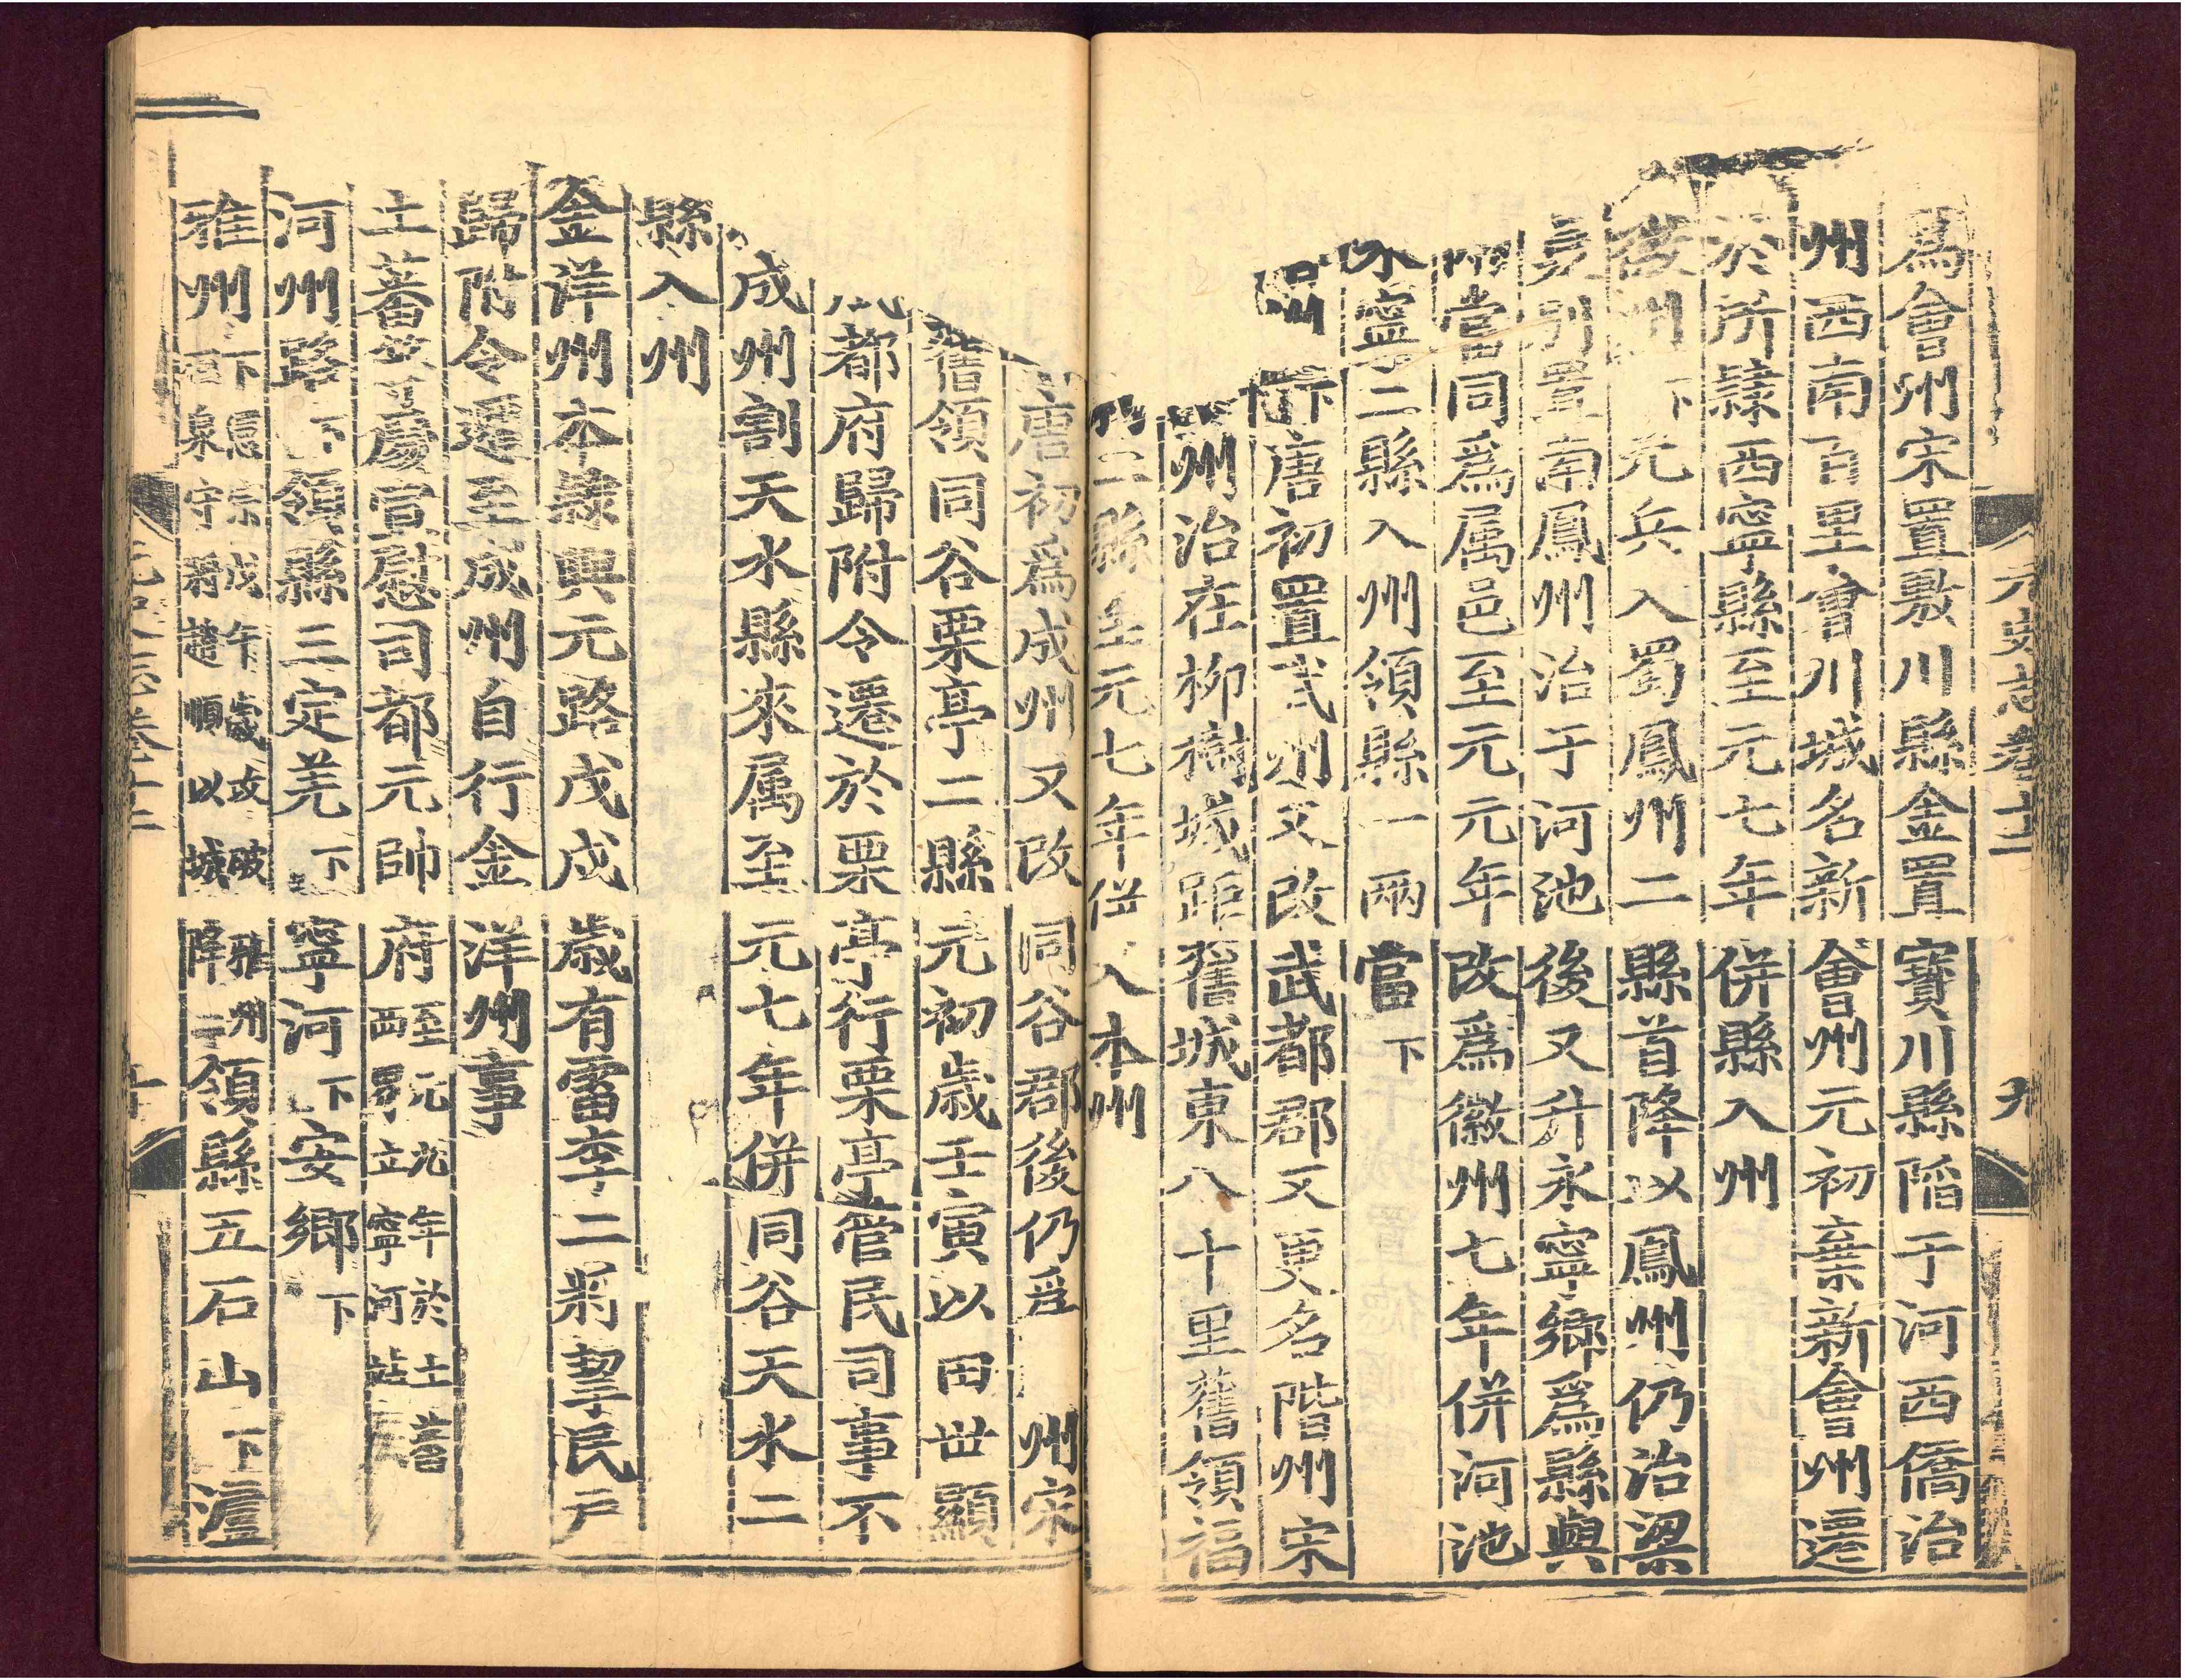 元史志卷十二
九
爲會州宋置敷川縣金置寶川縣陷于河西僑治
州西南百里會川城名新會州元初棄新會州遷
於所隷西寧縣至元七年併縣入州
州下元兵入蜀鳳州二縣首降以鳳州仍治梁
泉別置南鳳州治于河池後又升永寧鄉爲縣與
兩當同爲属邑至元元年改爲徽州七年併河池
永寧二縣入州領縣一兩當下
下唐初置武州又改武都郡又更名階州宋
州治在柳樹城距舊城東八十里舊領福
二縣至元七年併入本州
唐初爲成州又改同谷郡後仍爲 州宋
舊領同谷栗亭二縣元初歲壬寅以田世顯
都府歸附令遷於栗亭行栗亭管民司事不
成州割天水縣來属至元七年併同谷天水二
縣入州
金洋州本隷興元路戊戌歲有雷李二將挈民戶
歸附令遷至成州自行金洋州事
土蕃等處宣慰司都元帥府至元九年於土蕃西界立寧河站
河州路下領縣三定羌下寧河下安鄉下
雅州下憲宗戊午歲攻破雅州石泉守將趙順以城降領縣五石山下瀘